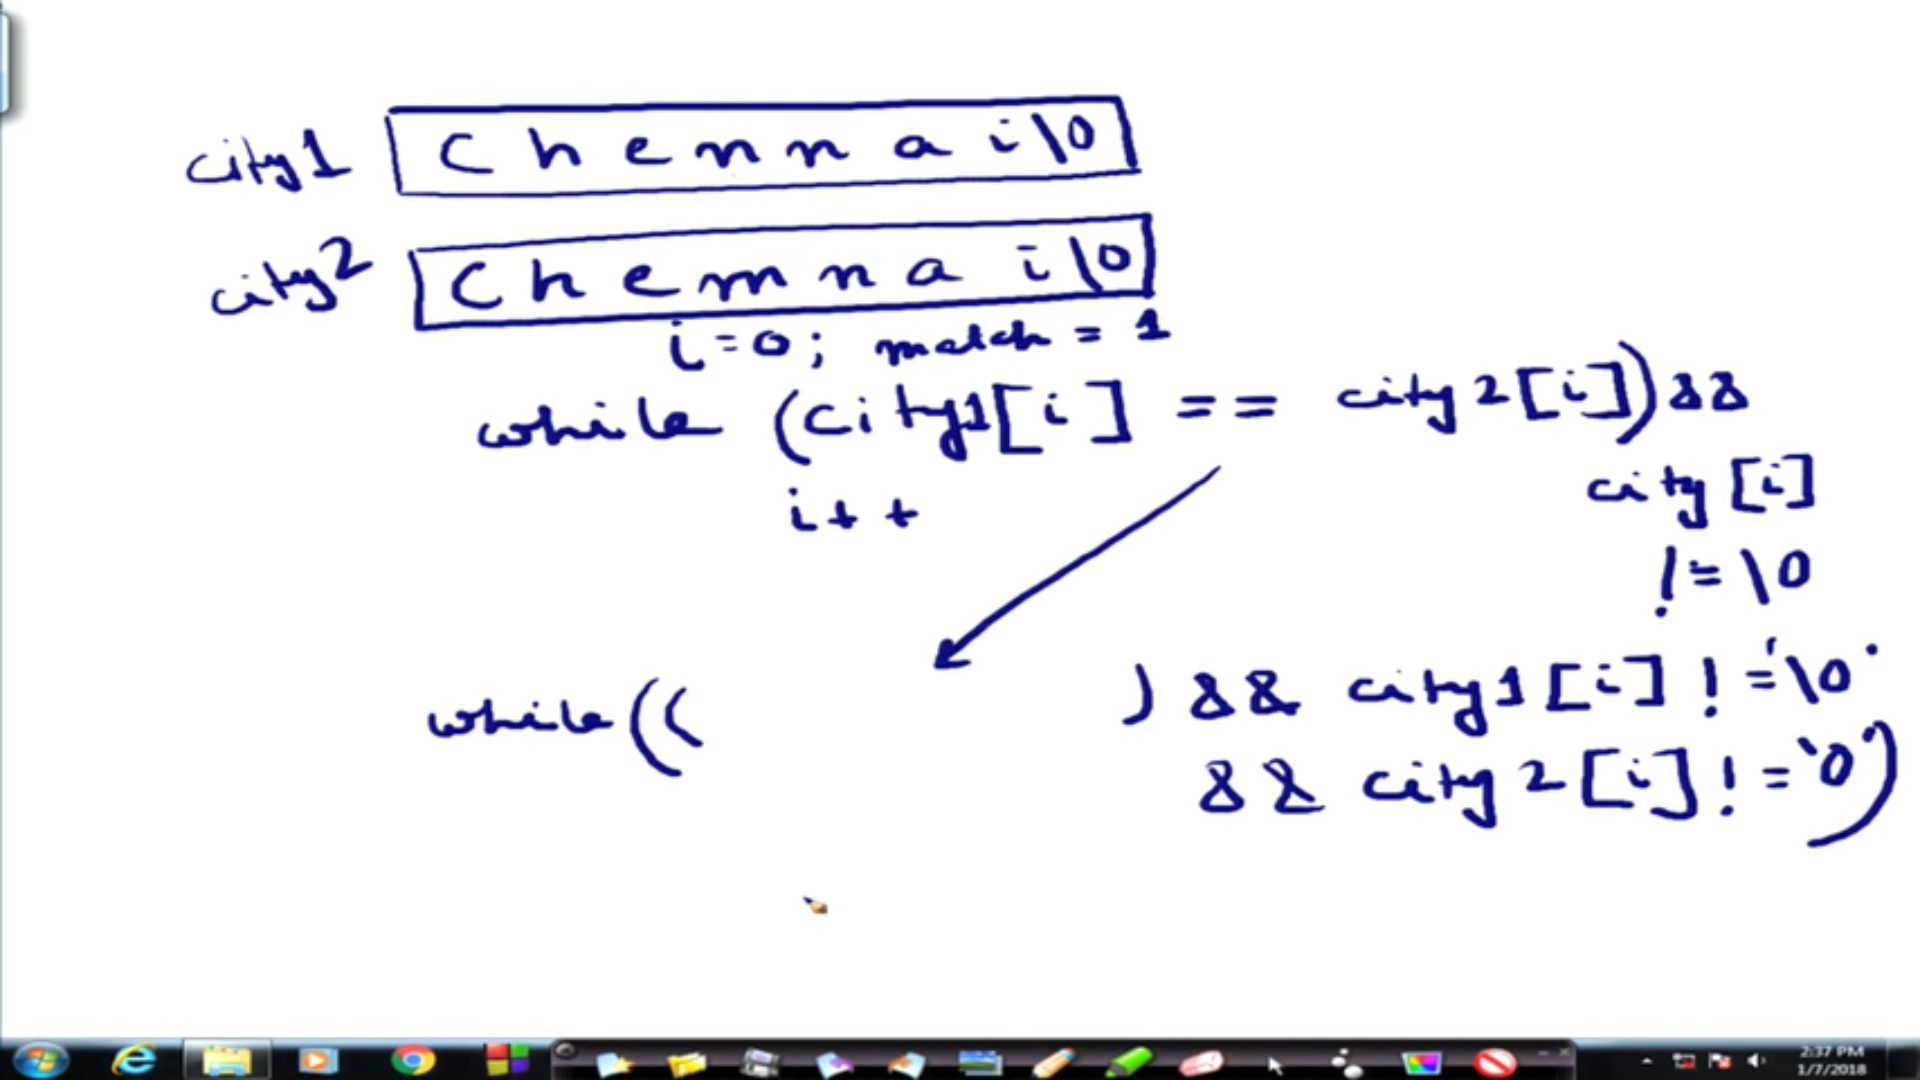 city1 Chennai\0
city2 Chennai\0
i=0; match = 1
while (city1[i] == city2[i]) &&
city[i]
i++
!=\0
while(( ) && city1[i] != '\0'
&& city2[i] != '0')
2:37 PM
1/7/2018